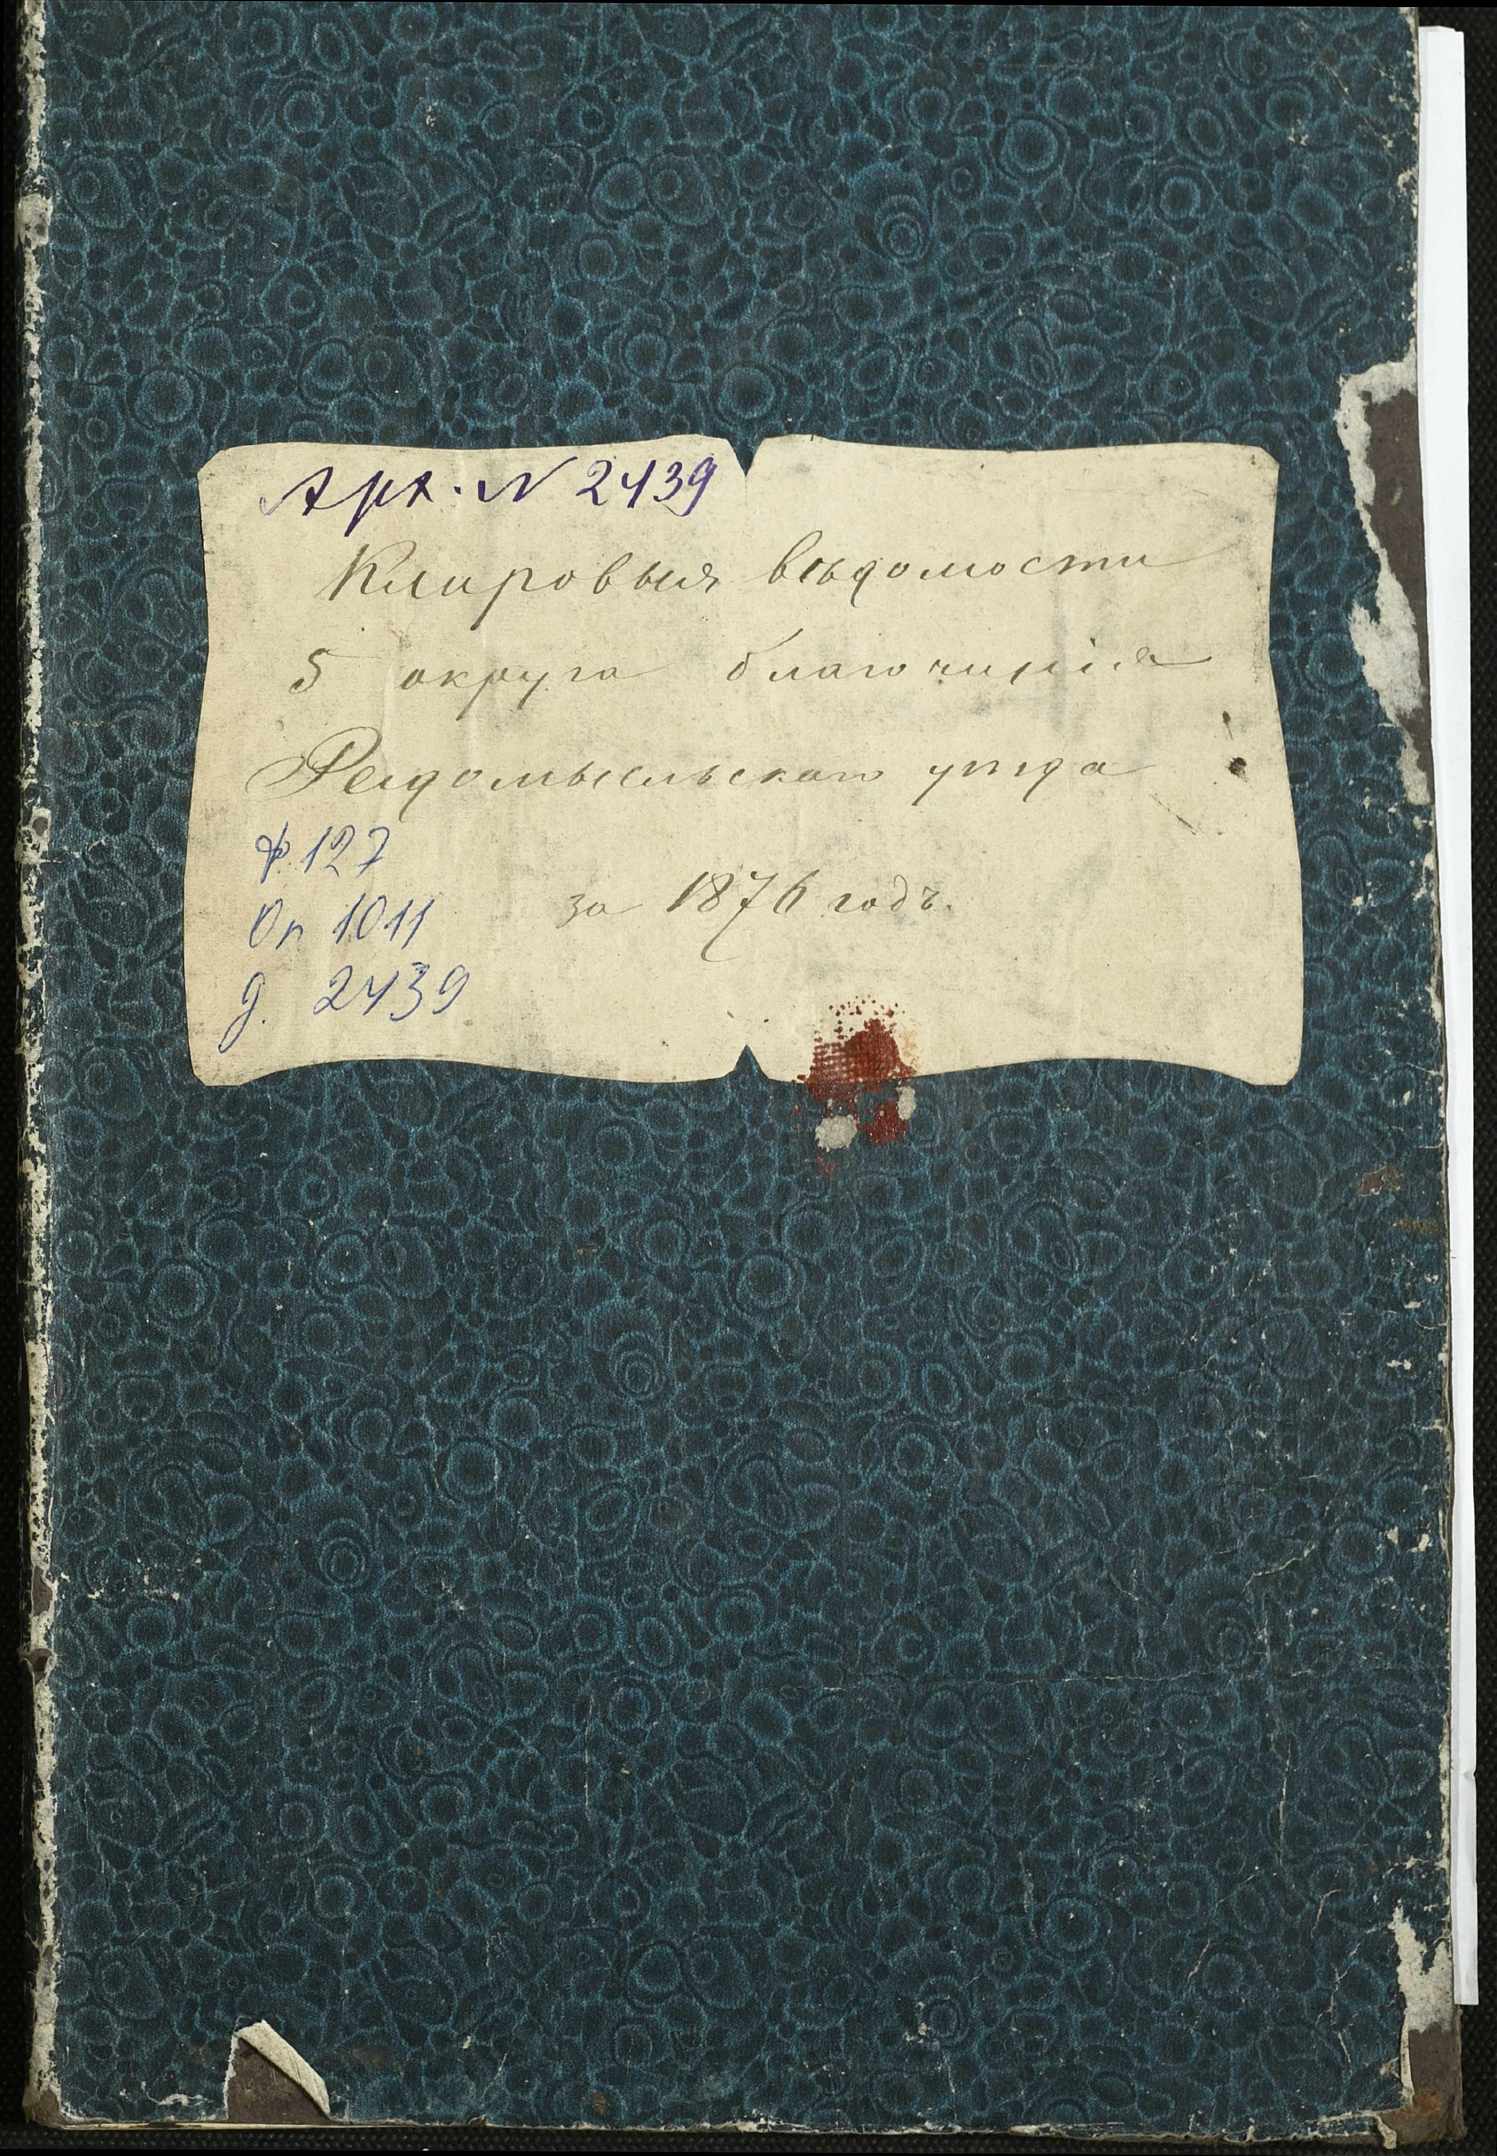 Арх. N 2439
Клировыя вѣдомости
5 округа благочинія
Радомысльскаго уѣзда
ф. 127
за 1876 годъ.
Оп 1011
д. 2439